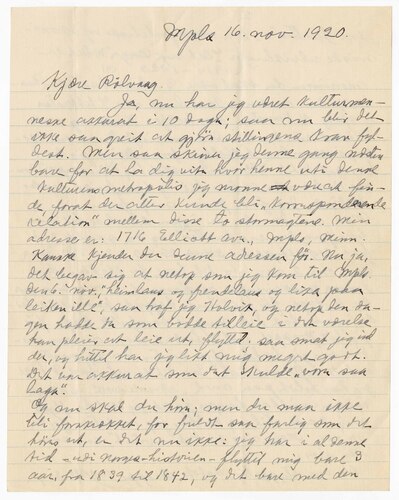 Mpls 16. nov. 1920.
Kjære Rölvaag.
Ja, nu har jeg været kulturmen-
neske akkurat i 10 dage; saa nu blir det
ikke saa greit at gjöre stillingens krav fyl-
dest. Men saa skriver jeg denne gang
bare for at la dig vite hvor henne uti denne
kulturens metropolis jeg monne være at fin-
de forat der atter kunde bli „korresponderende
relation" mellem disse to stormagter. Min
adresse er: 1716 Elliott ave., Mpls, Minn.
Kanske kjender du denne adressen för. Nu ja,
det begav sig at netop som jeg kom til Mpls
den 6. nov., „heimlaus og frendelaus og lika
", saa traf jeg Holvik, og netop den da-
gen hadde da som bodde tilleie i det værelse
han pleier at leie ut, flyttet. saa mat jeg ind
der, og hittil har jeg likt mig meget godt.
Det var akkurat som det skulde „vera saa
laga".
Og nu skal du höre; men du maa ikke
bli forskrækket, for fuldt saa farlig som det
höres ut, er det nu ikke: jeg har i al denne
tid – udi Norges-historien – flyttet mig bare 3
aar, fra 1839 til 1842, og det bare med den